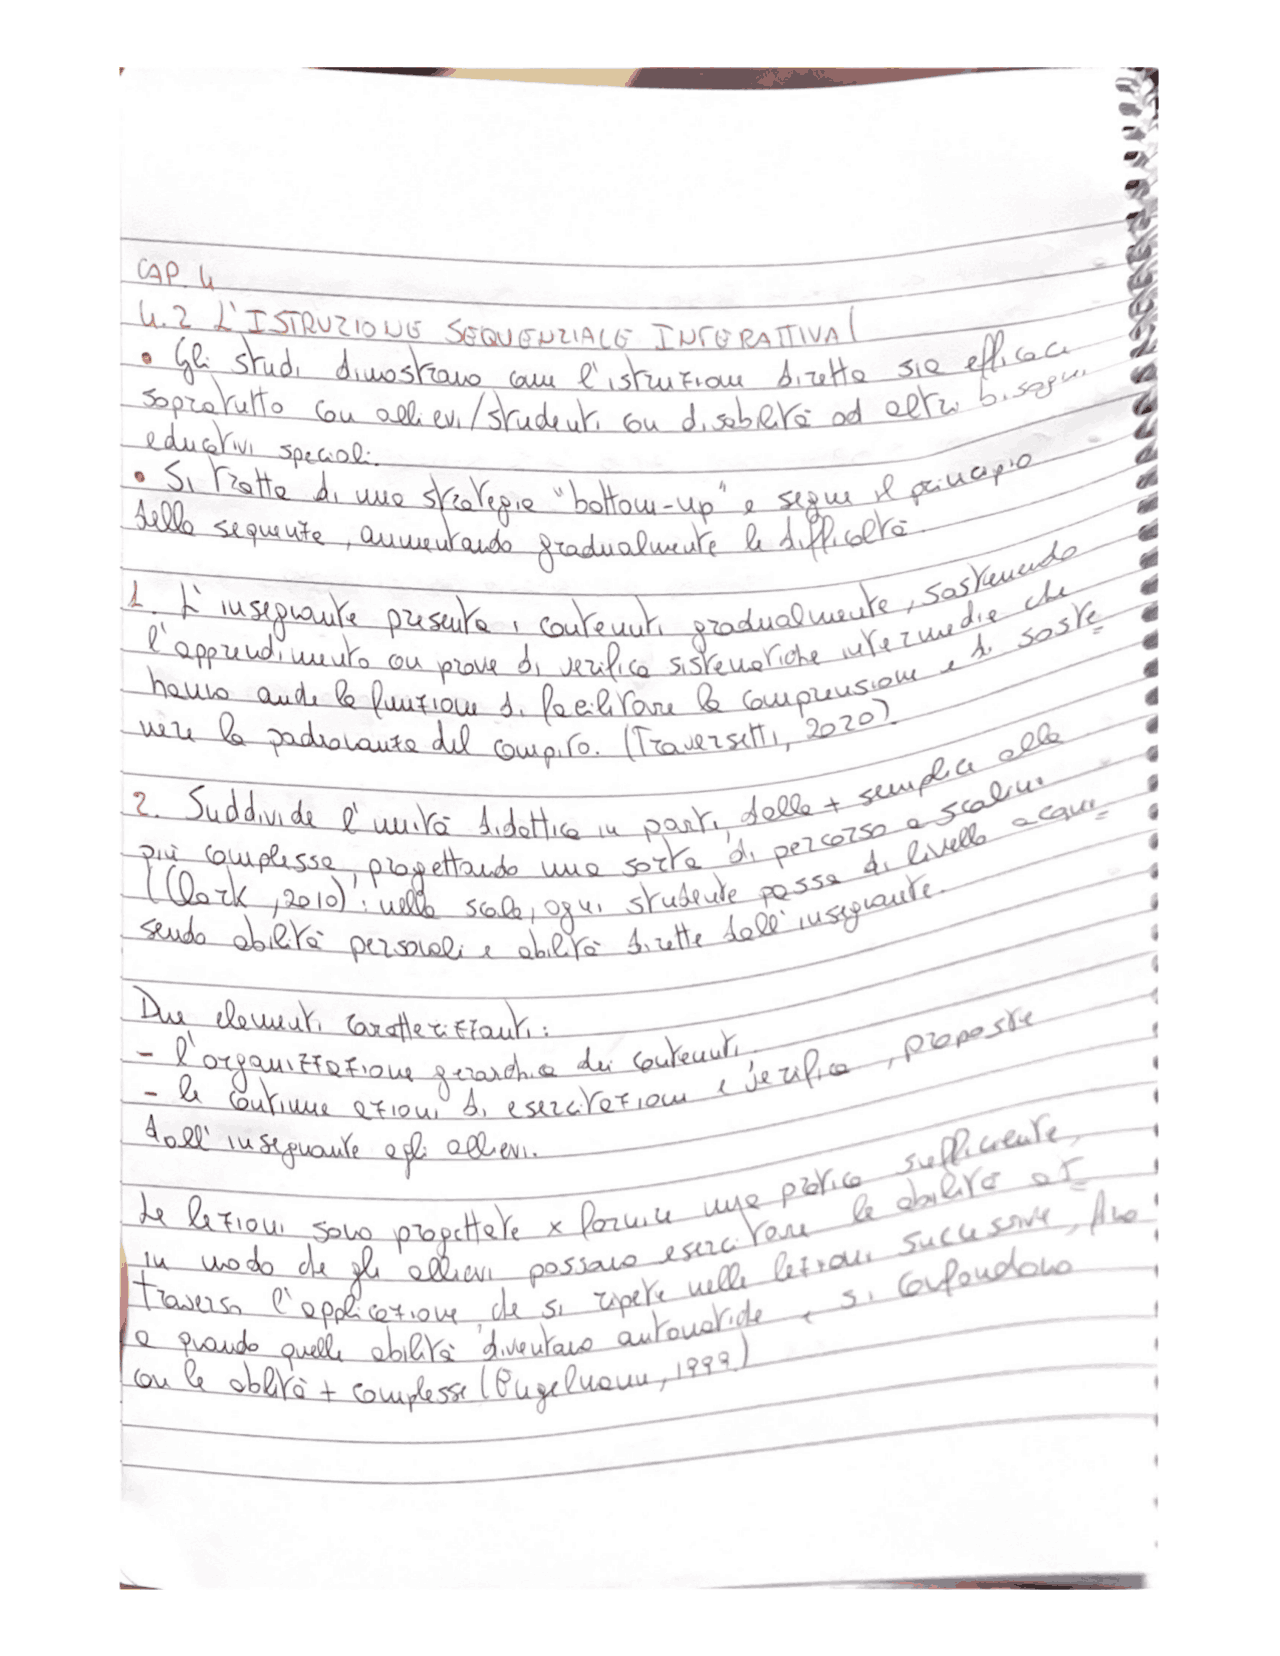 CAP. 4
4.2 L'ISTRUZIONE SEQUENZIALE INTERATTIVA
• Gli studi dimostrano come l'istruzione diretta sia efficace
sopratutto con allievi/studenti con disabilità od altri bisogni
educativi speciali.
• Si tratta di una strategia "bottom-up" e segue il principio
della sequenza, aumentando gradualmente le difficoltà.
1. L'insegnante presenta i contenuti gradualmente, sostenendo
l'apprendimento con prove di verifica sistematiche intermedie che
hanno anche la funzione di facilitare la comprensione e di soste=
nere la padronanza del compito. (Traversetti, 2020).
2. Suddivide l'unità didattica in parti, dalle + semplici alle
più complesse, progettando una sorta di percorso a scalini
(Clark, 2010): nella scala, ogni studente passa di livello acqui=
sendo abilità personali e abilità dirette dall'insegnante.
Due elementi caratterizzanti:
- l'organizzazione gerarchica dei contenuti
- le continue azioni di esercitazione e verifica, proposte
dall'insegnante agli allievi.
Le lezioni sono progettate x fornire una pratica sufficiente,
in modo che gli allievi possano esercitare le abilità at=
traverso l'applicazione, che si ripete nelle lezioni successive, fino
a quando quelle abilità diventano automatiche e si confondono
con le ablità + complesse (Engelmann, 1999)